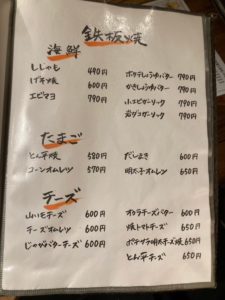 鉄板焼
海鮮
ししゃも 490円
げそ焼 600円
エビマヨ 790円
ホタテしょうゆバター 790円
かきしょうゆバター 790円
小エビガーリック 790円
岩ダコガーリック 790円
たまご
とん平焼 580円
コーンオムレツ 570円
だしまき 600円
明太子オムレツ 650円
チーズ
山いもチーズ 600円
チーズオムレツ 600円
じゃがバターチーズ 600円
オクラチーズバター 600円
焼トマトチーズ 650円
ポテサラ明太チーズ焼 650円
とん平チーズ 650円